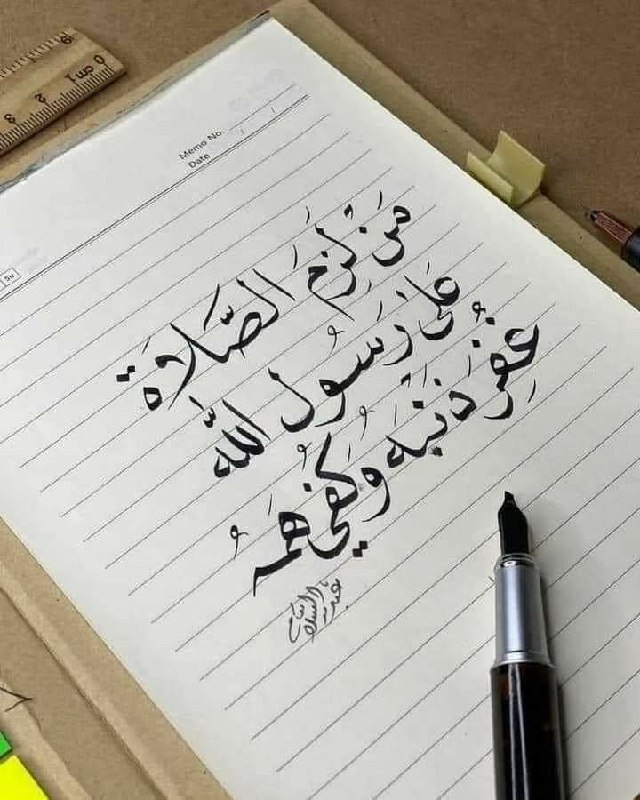 Memo No.
Date / /
0 1cm 2 3
مَن لَزِمَ الصَّلَاة
عَلَى رَسُول اللَّه
غُفِرَ ذَنبُه وَكُفِيَ
هَمّهُ